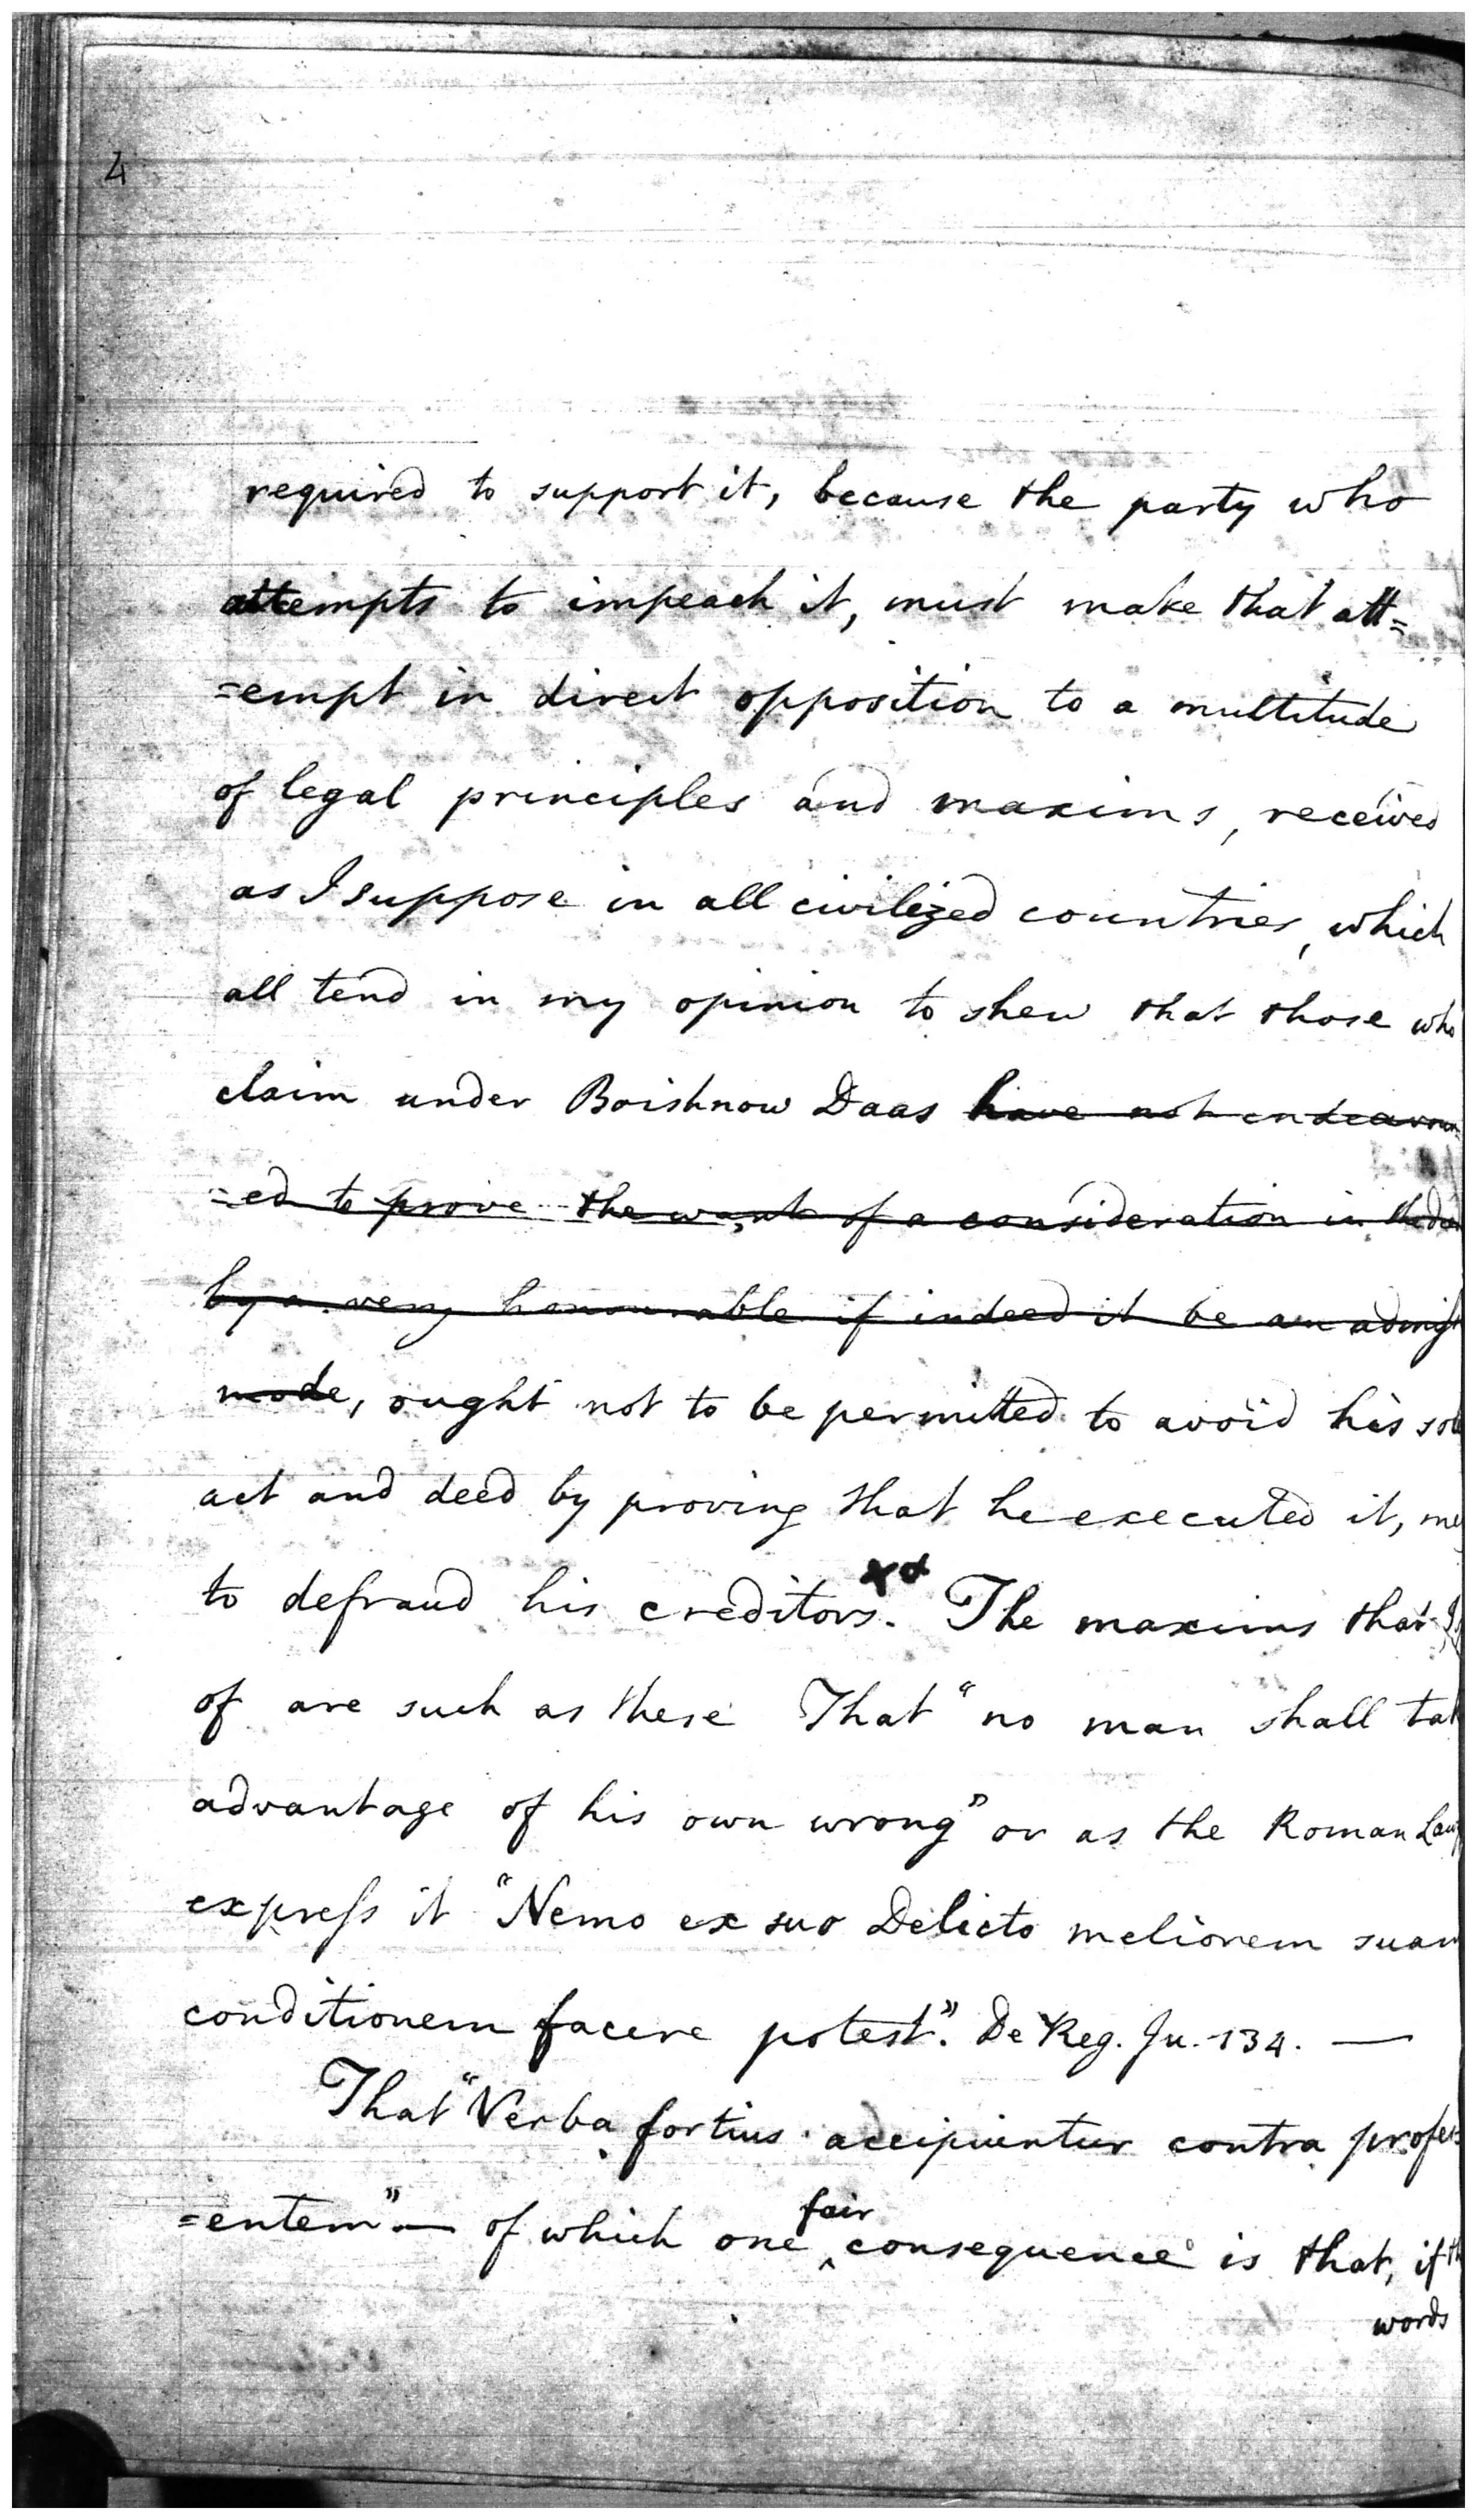 4
required to support it, because the party who
attempts to impeach it, must make that att=
=empt in direct opposition to a multitude
of legal principles and maxims, received
as I suppose in all civilized countries, which
all tend in my opinion to shew that those who
claim under Boishnow Daas have not endeavour
=ed to prove the want of a consideration in the
by a very honourable if indeed it be an
mode, ought not to be permitted to avoid his
act and deed by proving that he executed it,
to defraud his creditors. The maxims that I
of are such as these That "no man shall
advantage of his own wrong" or as the Roman
express it "Nemo ex suo Delicto meliorem suam
conditionem facere potest". De Reg. Ju. 134. —
That "Verba fortius accipiuntur contra profer
=entem" — of which one fair consequence is that, if
words